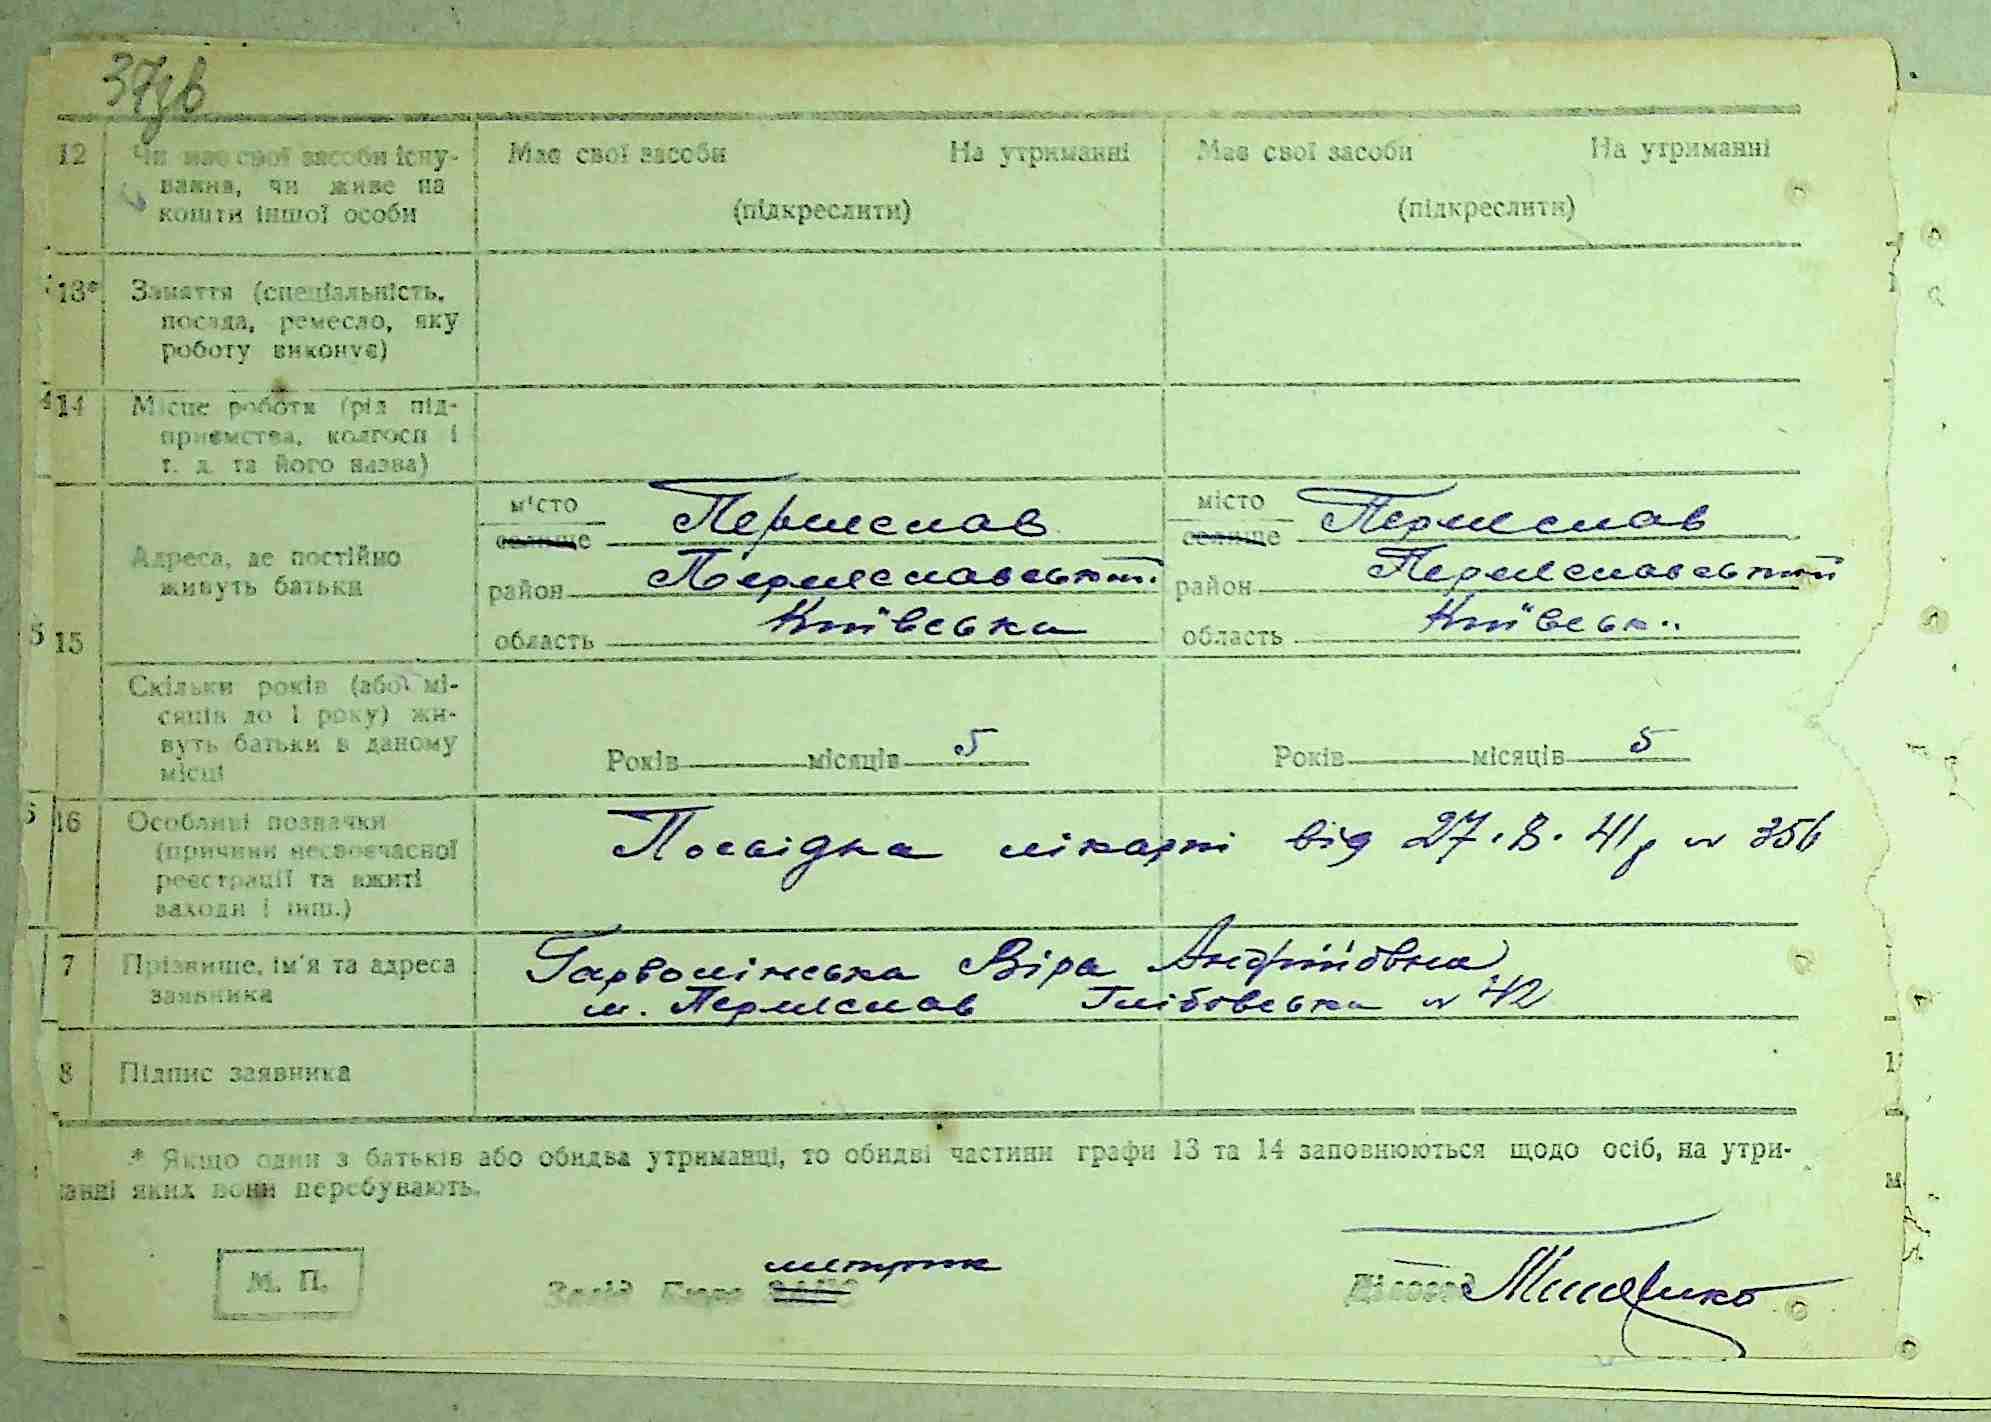 37зв
12 Чи має свої засоби існу- Має свої засоби На утриманні Має свої засоби На утриманні
вання, чи живе на
кошти іншої особи (підкреслити) (підкреслити)
13* Заняття (спеціальність,
посада, ремесло, яку
роботу виконує)
14 Місце роботи (рід під-
приємства, колгосп і
т. д. та його назва)
місто Переяслав місто Переяслав
селище селище
Адреса, де постійно
живуть батьки
район Переяславський район Переяславський
область Київська область Київськ
15
Скільки років (або мі-
сяців до 1 року) жи-
вуть батьки в даному
місці
Років місяців 5 Років місяців 5
16 Особливі позначки
(причини несвоєчасної
реєстрації та вжиті
заходи і інш.)
Посвідка лікарні від 27.8.41р №
7 Прізвище, ім'я та адреса
заявника
Гарволінська Віра Андріївна
м. Переяслав Глібовська № 42
8 Підпис заявника
* Якщо один з батьків або обидва утриманці, то обидві частини графи 13 та 14 заповнюються щодо осіб, на утри-
анні яких вони перебувають.
метрик
М. П. Завід Бюро ЗАГС Діловод